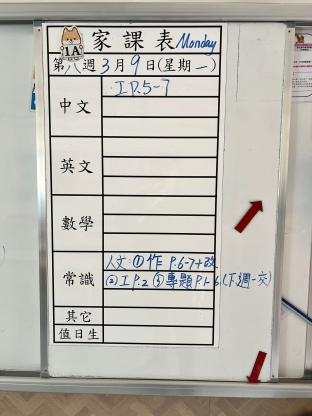 1A 家課表 Monday
第八週3月9日(星期一)
中文 I P.5-7
英文
數學
常識 人文:①作 P.6-7+改
②I P.2 ③專題 P.1-6(下週一交)
其它
值日生